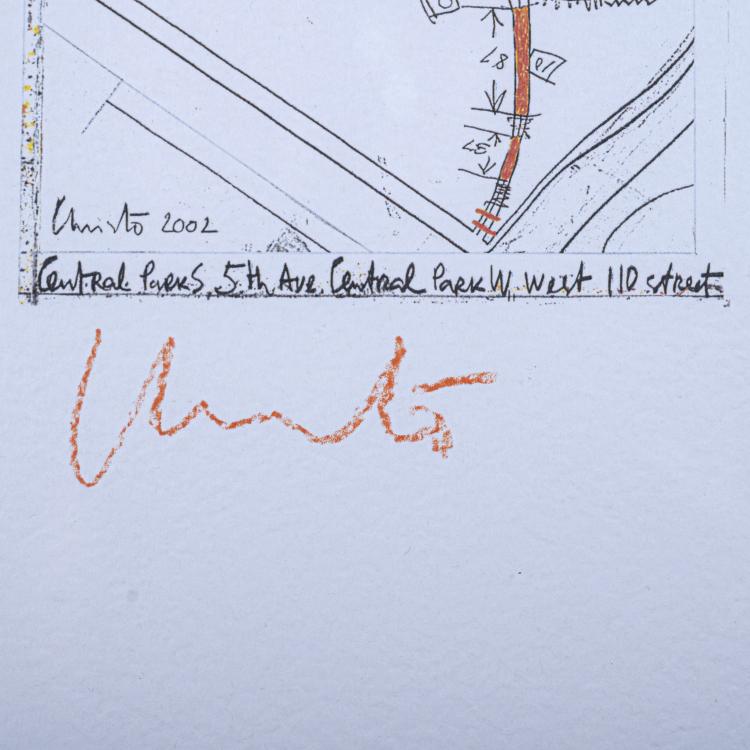 87
10
37
Christo 2002
Central Park S, 5.th Ave. Central Park W, West 110 street
Christo